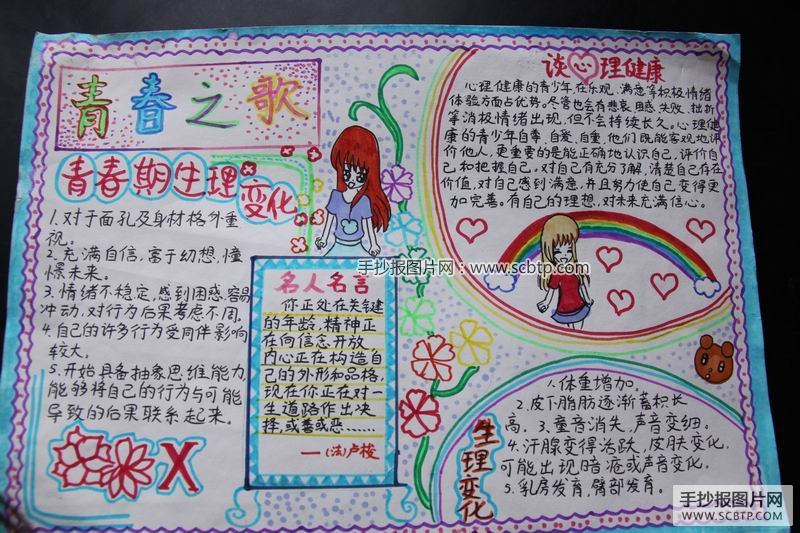 青春之歌
青春期生理变化
1.对于面孔及身材格外重
视。
2.充满自信,富于幻想,憧
憬未来。
3.情绪不稳定,感到困惑.容易
冲动,对行为后果考虑不周。
4.自己的许多行为受同伴影响
较大。
5.开始具备抽象思维能力,
能够将自己的行为与可能
导致的后果联系起来。
X
名人名言
你正处在关键
的年龄,精神正
在向信念开放,
内心正在构造自
己的外形和品格,
现在你正在对一
生道路作出决
择,或善或恶……
—(法)卢梭
谈心理健康
心理健康的青少年,在乐观、满意等积极情绪
体验方面占优势。尽管也会有悲哀、困惑、失败、挫折
等消极情绪出现,但不会持续长久。心理健
康的青少年自尊、自爱、自重,他们既能客观地评
价他人,更重要的是能正确地认识自己,评价自
己和把握自己,对自己有充分了解,清楚自己存在
价值,对自己感到满意,并且努力使自己变得更
加完善。有自己的理想,对未来充满信心。
手抄报图片网:www.scbtp.com
生理变化
1.体重增加。
2.皮下脂肪逐渐蓄积长
高。3.童音消失,声音变细。
4.汗腺变得活跃,皮肤变化,
可能出现暗疮或声音变化。
5.乳房发育,臀部发育。
手抄报图片网
WWW.SCBTP.COM